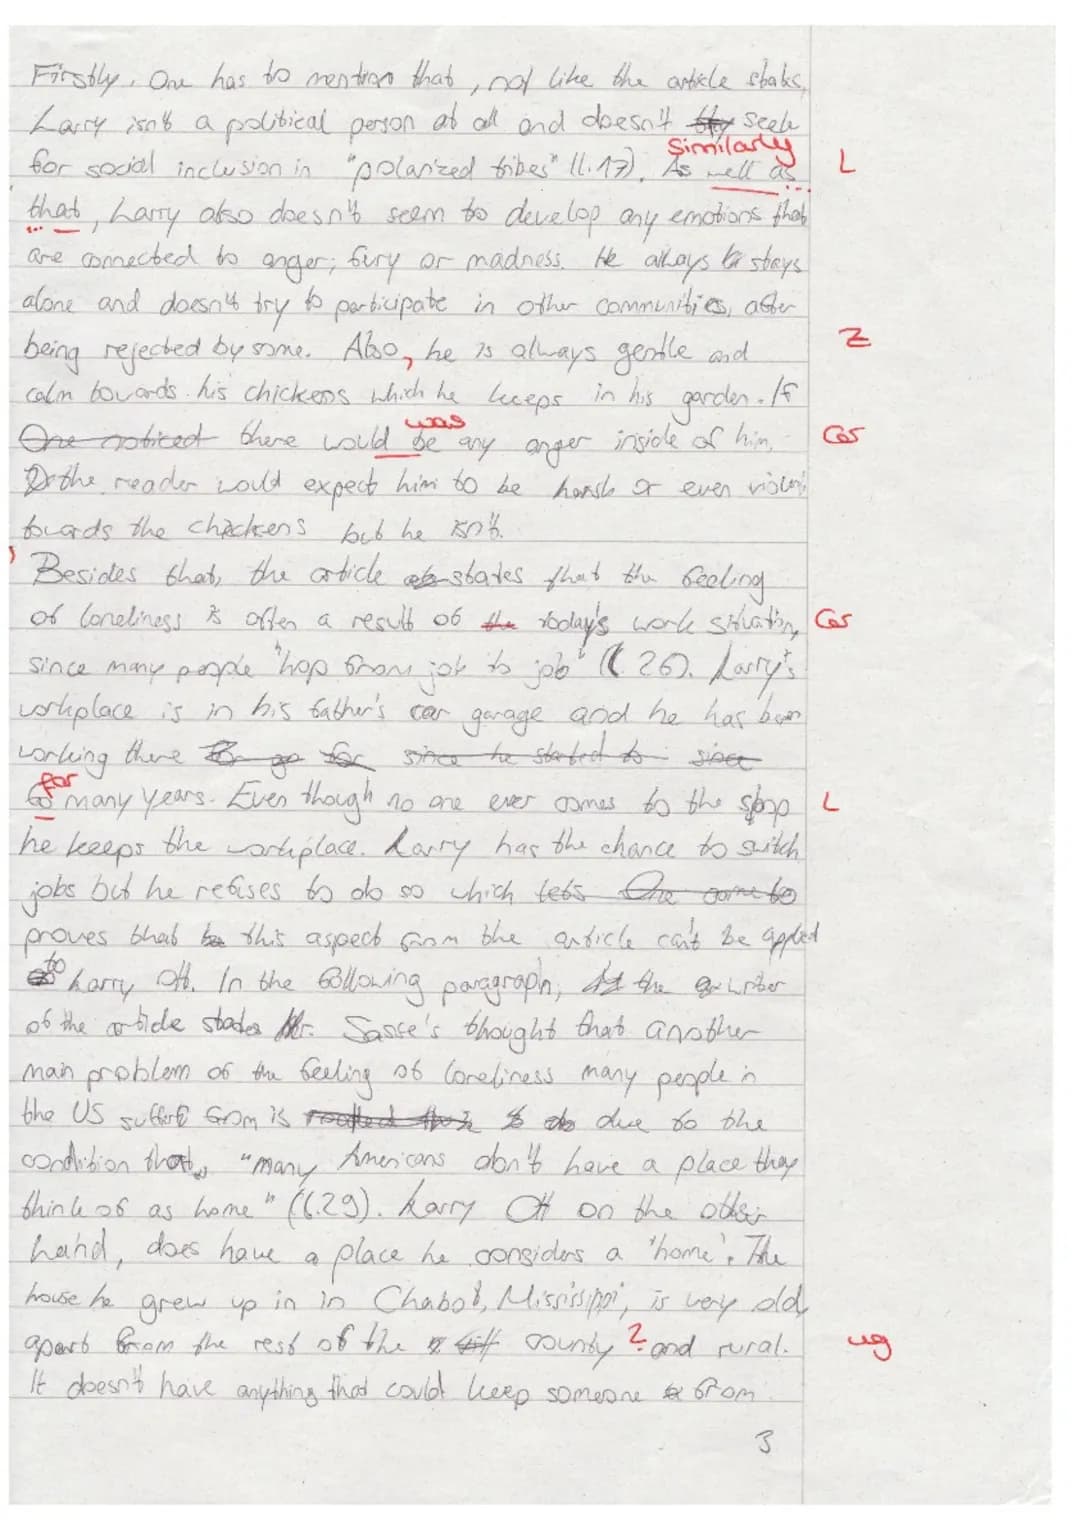 Firstly, One has to mention that, not like the article states,
Larry isn't a political person at all and doesn't seek
Similarly
for social inclusion in "polarized tribes" (l. 17). As well as L
that, Larry also doesn't seem to develop any emotions that
are connected to anger, fury or madness. He always stays
alone and doesn't try to participate in other communities, after
being rejected by some. Also, he is always gentle and Z
calm towards his chickens which he keeps in his garden. If
was
One noticed there would be any anger inside of him, Gr
the reader would expect him to be harsh or even violent
towards the chickens but he isn't.
Besides that, the article states that the feeling
of loneliness is often a result of the today's work situation, Gr
since many people "hop from job to job" (l. 26). Larry's
workplace is in his father's car garage and he has been
working there for since he started to since
for
so many years. Even though no one ever comes to the shop L
he keeps the workplace. Larry has the chance to switch
jobs but he refuses to do so which lets One come to
proves that this aspect from the article can't be applied
to Larry Ott. In the following paragraph, the writer
of the article states Mr. Sasse's thought that another
main problem of the feeling of loneliness many people in
the US suffer from is due to the
condition that, "many Americans don't have a place they
think of as home" (l. 29). Larry Ott on the other
hand, does have a place he considers a 'home'. The
house he grew up in in Chabot, Mississippi, is very old,
apart from the rest of the county ? and rural. ug
It doesn't have anything that could keep someone from
3